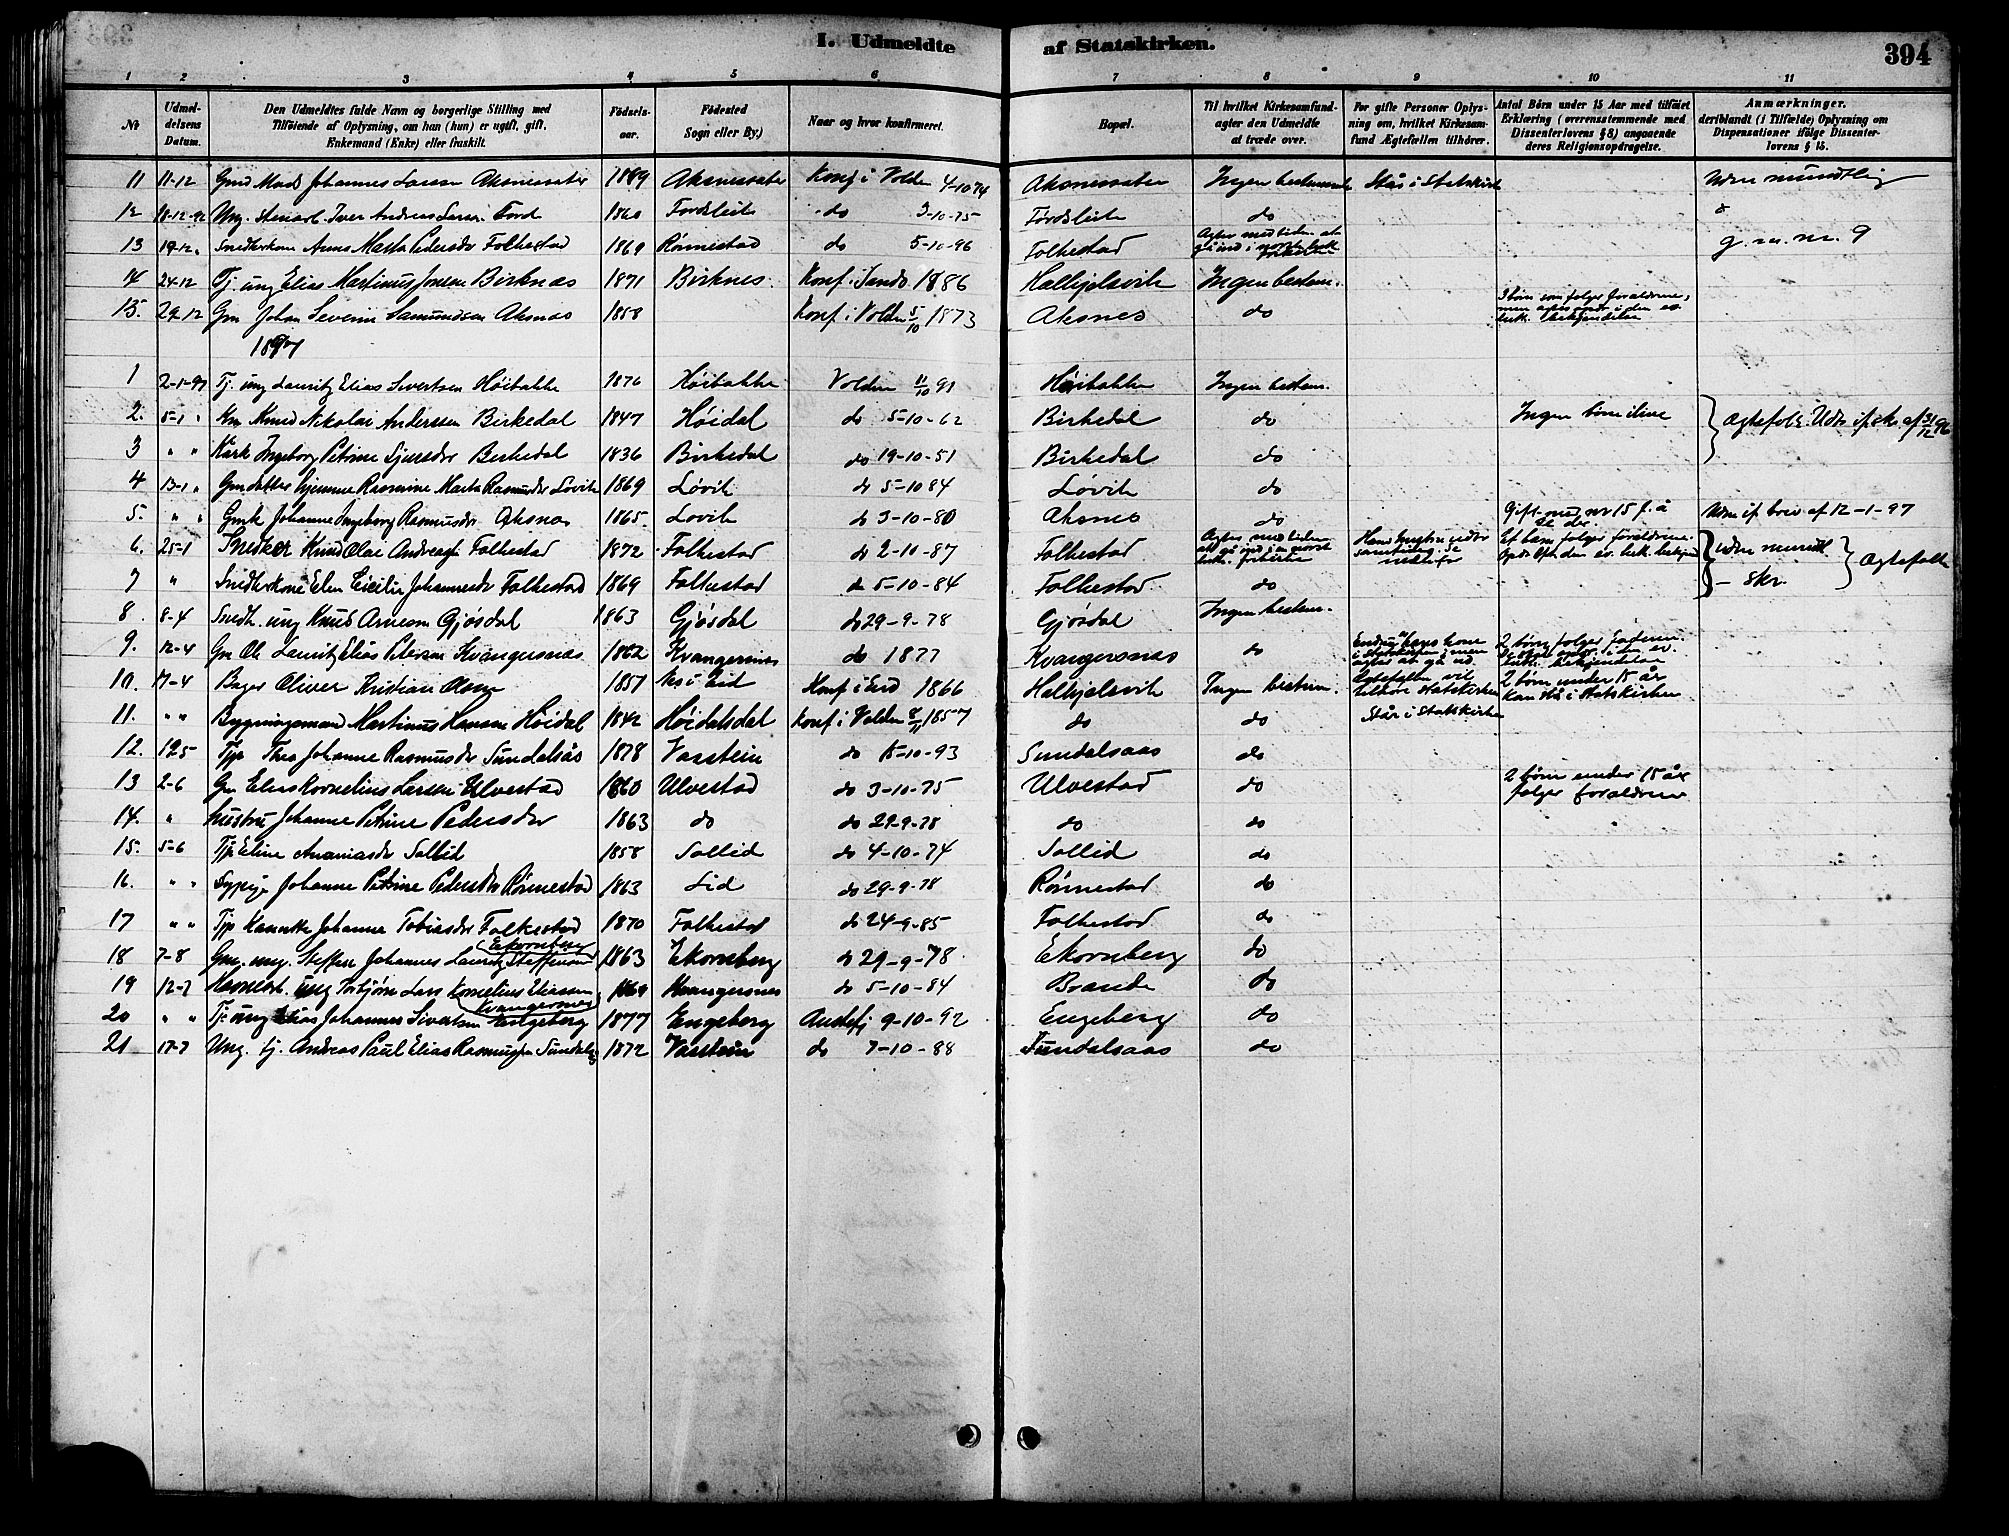 I. Udmeldte af Statskirken. 394
1 2 3 4 5 6 7 8 9 10 11
No
Udmeldelsens Datum.
Den Udmeldtes fulde Navn og borgerlige Stilling med Tilføiende af Oplysning, om han (hun) er ugift, gift, Enkemand (Enke) eller fraskilt.
Fødselsaar.
Fødested Sogn eller By.)
Naar og hvor konfirmeret.
Bopæl.
Til hvilket Kirkesamfund agter den Udmeldte at træde over.
For gifte Personer Oplysning om, hvilket Kirkesamfund Ægtefællen tilhører.
Antal Børn under 15 Aar med tilføiet Erklæring (overensstemmende med Dissenterlovens § 8) angaaende deres Religionsopdragelse.
Anmærkninger, deriblandt (i Tilfælde) Oplysning om Dispensationer ifølge Dissenterlovens § 15.
11 11-12 Johannes Larsen Aksnessæter Aksnessæter Konf i Volden 4-10 74 Aksnessæter Ingen bestemt Står i Statskirk Udm mundtlig
12 18-12-96 Ung. Iver Andreas Larsen Ford 1860 Fordsleite do 3-10-75 Fordsleite do
13 19-12 " Snedkerkone Anne Marta Pedersdr Folkestad 1869 Rönnestad do 5-10-96 Folkestad Agter med tiden at gå ind i norsk luth. frikirke g. m. nr. 9
14 24-12 Tj. ung Elias Martinus Jonsen Birknes 1871 Birknes Konf. i 1886 Halkjelsvik Ingen bestem.
15. 29-12 Gm Johan Severin Samundsen Aksnes 1858 Konf. i Volden 5/10 1873 Aksnes do 3 børn som følger forældrene, men
1897
1 2-1-97 Tj. ung Lauritz Elias Sivertsen Høibakke 1876 Høibakke Volden 11/10 91 Høibakke Ingen bestem.
2. 5-1 " Knud Nikolai Anderssen Birkedal 1847 Høidal do 5-10-62 Birkedal do Ingen børn ilive Ægtefolk. Udm. if. skr. af 31/12 96
3 " " Ingeborg Petrine Sjursdr Birkedal 1836 Birkedal do 19-10-51 Birkedal do
4 13-1 " Gmdatter hjemme Rasmine Marta Rasmusdr Løvik 1869 Løvik do 5-10 84 Løvik do
5. " " Gmk Johanne Ingeborg Rasmusdr Aksnes 1865. Løvik do 3-10-80 Aksnes do Gift med nr 15 f. å Udm if. brev af 12-1-97
6. 25-1 Snecker Knud Olai Andreas Folkestad 1872 Folkestad do 2-10-87 Folkestad Agter med tiden att gå ind i en norsk luth. frikirke Hans hustru udtr samtidig. Se nedenfor Et barn følger forældrene. udm mundl. Ægtefolk
7 " Snedkerkone Elen Cicilie Johannesdr Folkestad 1869 Folkestad do 5-10-84 Folkestad do - skr.
8. 8-4 Snedk. ung Knud Arnesen Gjøsdal 1863 Gjøsdal do 29-9-78 Gjøsdal Ingen bestem.
9. 12-4 Gm Ole Lauritz Elias Petersen Kvangersnes 1862 Kvangersnes do 1877 Kvangersnes do Endnu hans kone i Statskirken, men agter at gå ud 2 børn følger Faderen.
10. 17-4 Bager Oliver Kristian Olsen 1851 i Eid Konf i Eid 1866 Halkjelsvik Ingen bestem. Ægtefællen vil tilhøre statskirken 2 børn under 15 år kan stå i Statskirken
11. " " Bygningsmand Martinus Hansen Høidal 1842 Høidalsdal Konf i Volden 1857 do do Står i Statskirken
12. 12-5 Tjp Thea Johanne Rasmusdr Sundalsås 1878 Vasstein do 15-10-93 Sundalsaas do
13 2-6 Gm Elias Kornelius Larsen Ulvestad 1860 Ulvestad do 3-10-75 Ulvestad do 2 børn under 15 år følger forældrene
14. " hustru Johanne Petrine Pedersdr 1863 do do 29-9-78 do do
15. 5-6 Tjp Eline Ananiasdr Sollid 1858 Sollid do 4-10-74 Sollid do
16. " " Sypige Johanne Petrine Pedersdr Rønnestad 1863 Lid do 29-9-78 Rønnestad do
17 " " Tjp Johanne Tobiasdr Folkestad 1870 Folkestad do 24-9-85 Folkestad do
18 7-8 Gm. ung. Steffen Johannes Lauritz Steffensen Ekornberg 1863 Ekornberg do 29-9-78 Ekornberg do
19 12-7 ung Torbjørn Lars Kornelius Eliassen Kvangersnes 1869 Kvangersnes do 5-10-84 do
20 " " Tj. ung Elias Johannes Sivertsen Engeberg 1877 Engeberg Austefj 9-10-92 Engeberg do
21 17-7 Ung. tj. Andreas Paul Elias Rasmussen Sundalsås 1872 Vasstein do 7-10-88 Sundalsaas do